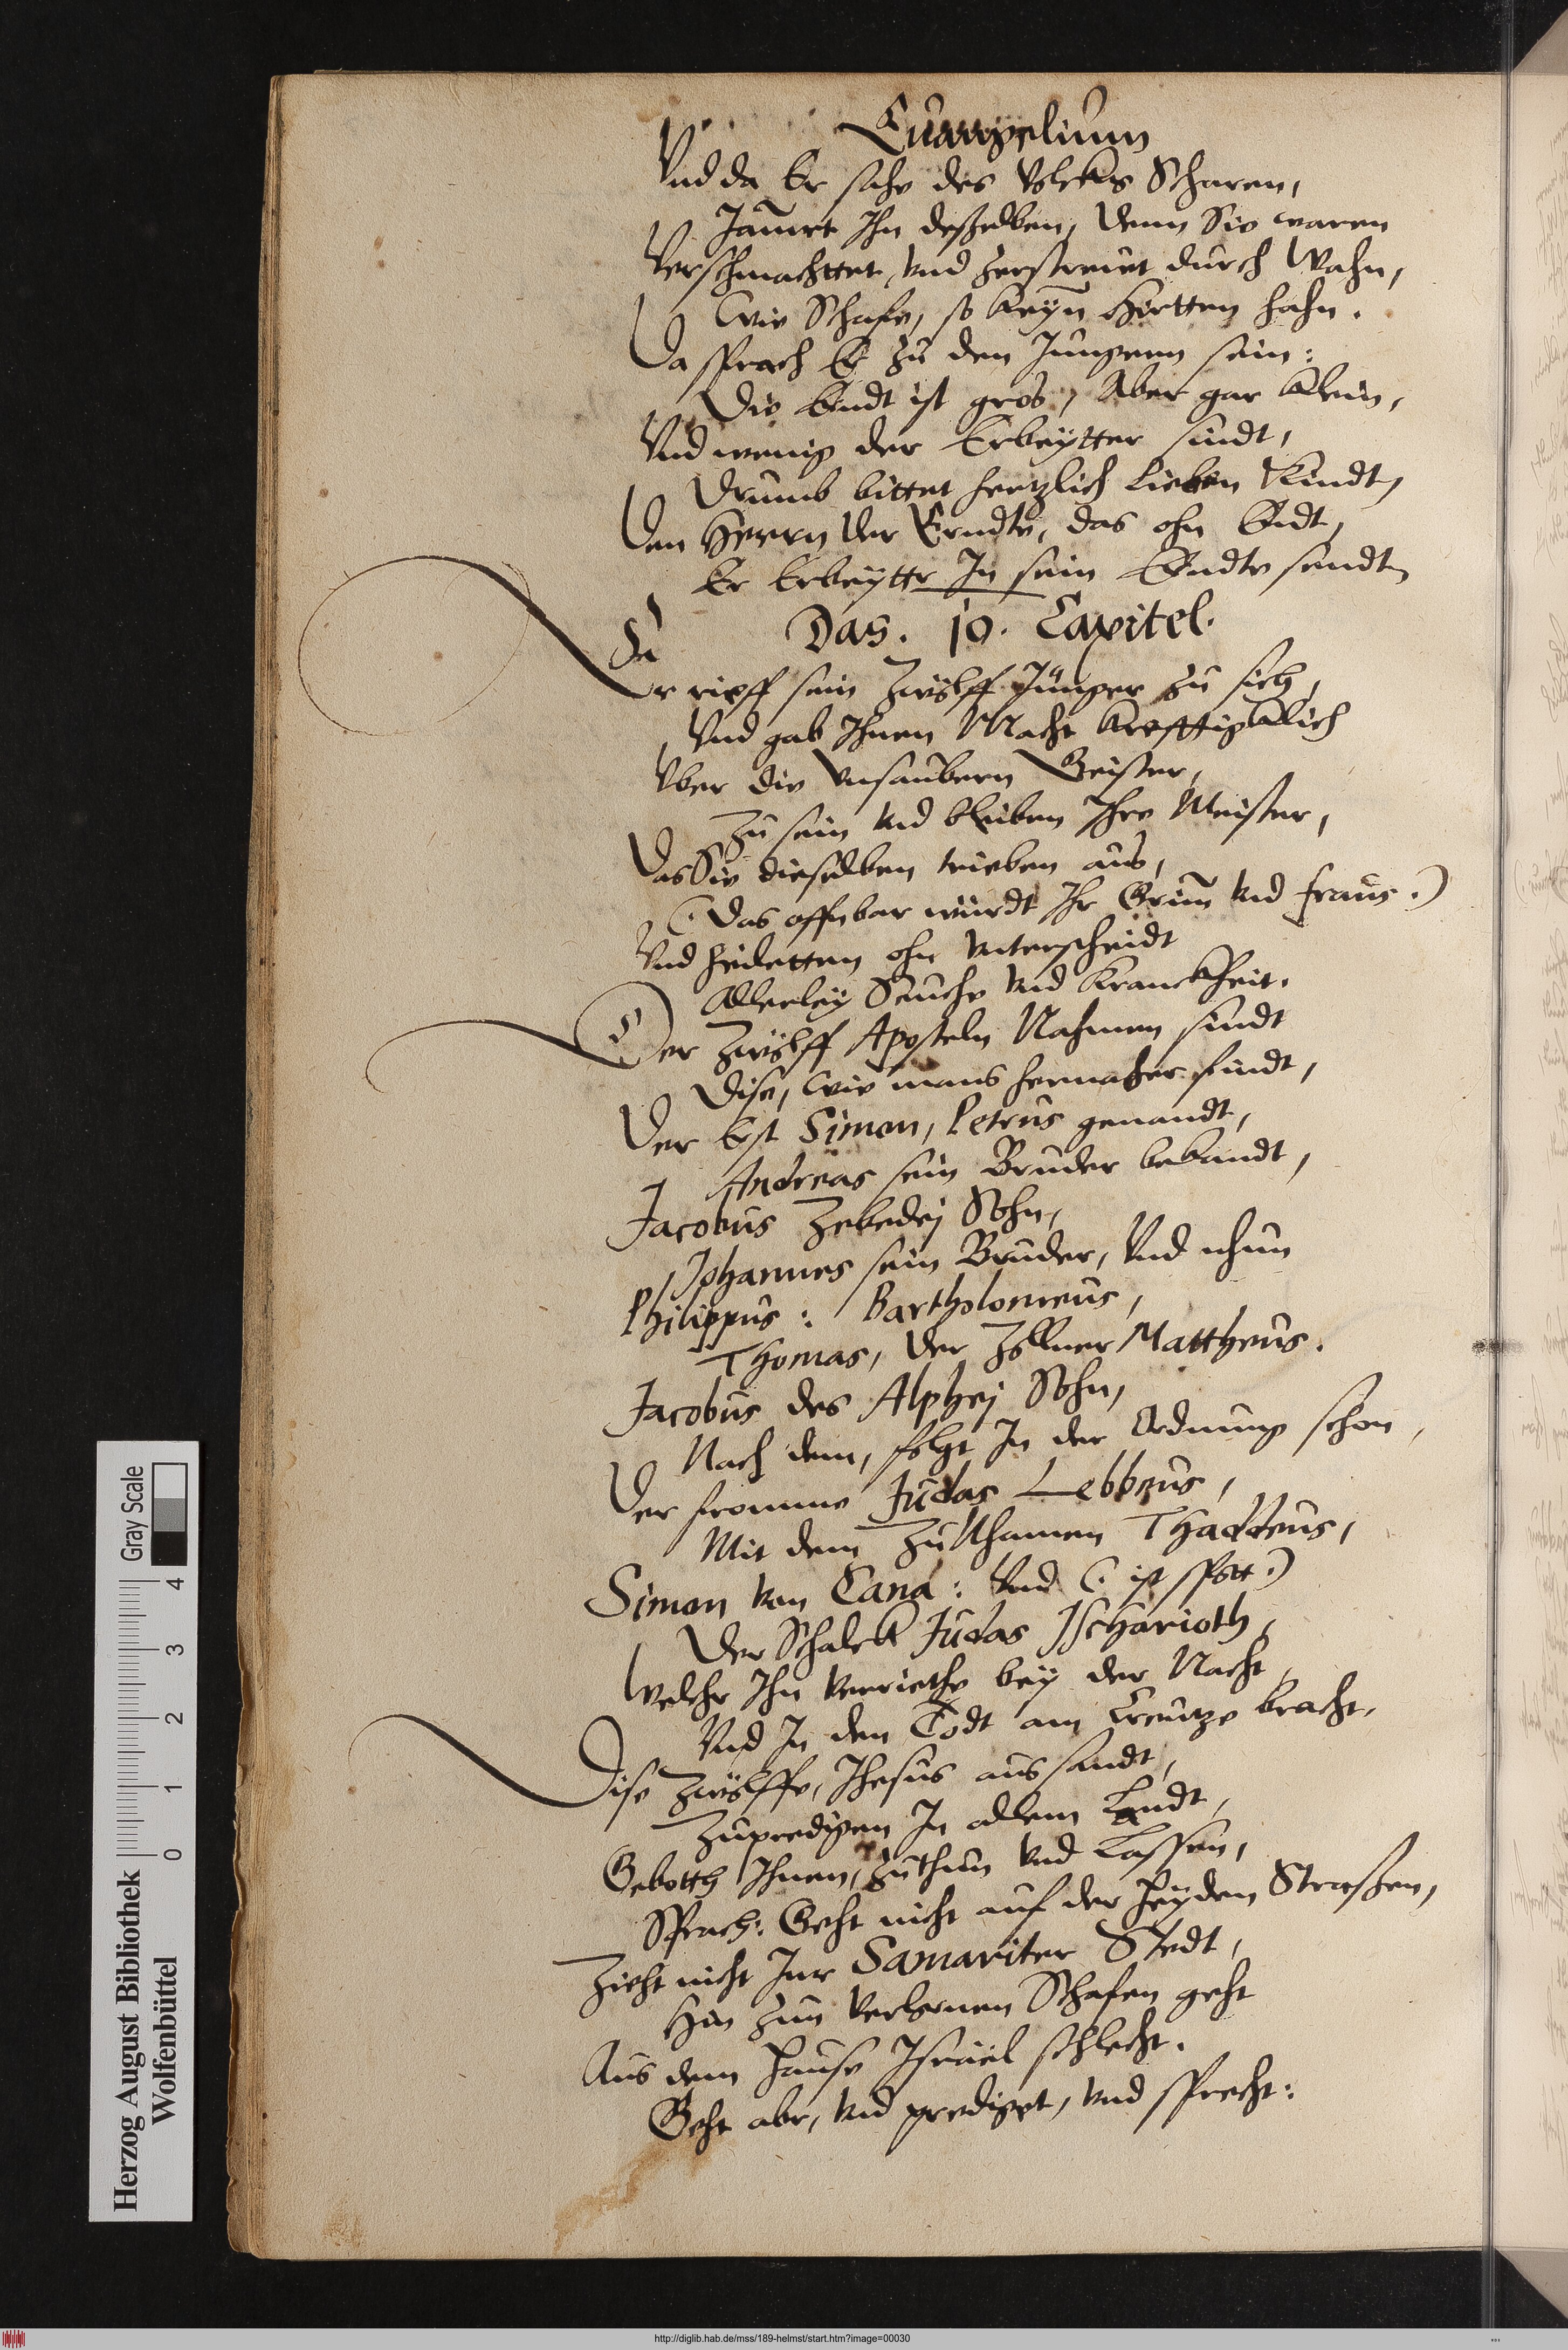 Euangelium
Vnd da Er sahe des Volcks Scharen,
Jam̃ert Ihn deßelben, denn Sie waren
Verschmachttet, vnd zerstreuet durch Wahn,
Wie Schafe, so keyñ Hirtten hahn.
Da sprach Er zu den Jungern sein:
Die Erndt ist gros, Aber gar klein,
Vnd wenig der Erbeytter sindt,
Drumb bittet hertzlich lieben Kindt,
Den Herrn der Erndte, das ohn Endt,
Er Erbeytter In sein Erndte sendt.
Das. 10. Capitel.
Er rieff sein Zwölff Jünger zu sich,
Vnd gab Ihnen Macht krefftigklich
Vber die vnsaubern Geister,
Zu sein vnd bleiben Ihre Meister,
Das Sie dieselben trieben aus,
(. Das offnbar würdt Ihr Grim̃ vnd fraus .)
Vnd heiletten ohn vnterscheidt
Allerley Seuche vnd Kranckheit.
Der Zwölff Aposteln Nahmen sindt
Dise, wie mans hernacher findt,
Der Erst Simon, Petrus genandt,
Andreas sein Bruder bekandt,
Jacobus Zebedej Sohn,
Johannes sein Bruder, Vnd nhun
Philippus: Bartholomeus,
Thomas, der Zöllner Mattheus.
Jacobus des Alphej Sohn,
Nach dem, folgt In der Ordnung schon,
Der fromme Judas Lebbeus,
Mit dem Zu Nhamen Thaddeus,
Simon von Cana: Vnd (. ist spott .)
Der Schalck Judas Ischarioth,
Welchr Ihn verriethe bey der Nacht,
Vnd In den Todt am Creutze bracht,
Dise Zwölffe, Ihesus aus sandt,
Zupredigen In allem Landt,
Gebotth Ihnen, zuthun vnd Lassen,
Sprach: Geht nicht auf der Heyden Straßen,
Zieht nicht Inr Samariter Stedt,
Hin zun verlornen Schafen geht
Aus dem Hause Israël schlecht.
Geht abr, vnd prediget, vnd sprecht:
Herzog August Bibliothek
Wolfenbüttel
0 1 2 3 4
Gray Scale
http://diglib.hab.de/mss/189-helmst/start.htm?image=00030